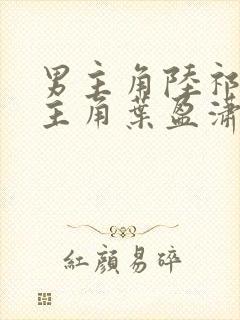 男主角陸祁
主角葉盈瀟
紅顏易碎